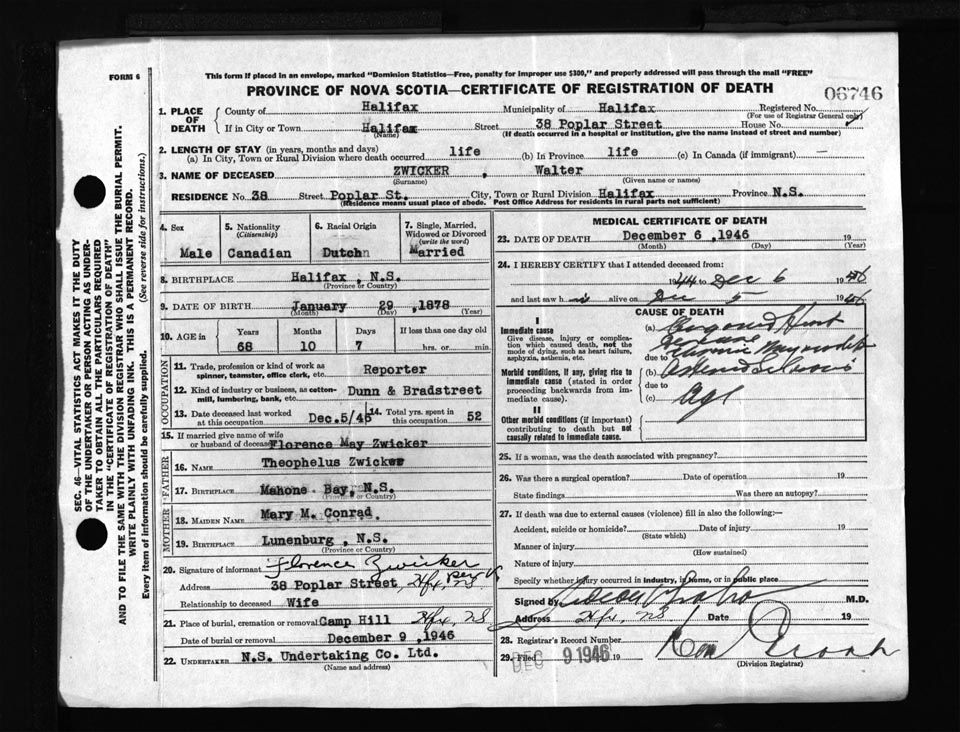 FORM 6
This form if placed in an envelope, marked "Dominion Statistics—Free, penalty for improper use $300," and properly addressed will pass through the mail "FREE"
PROVINCE OF NOVA SCOTIA—CERTIFICATE OF REGISTRATION OF DEATH
06746
1. PLACE OF DEATH
County of Halifax Municipality of Halifax Registered No.
(For use of Registrar General only)
If in City or Town Halifax Street 38 Poplar Street House No.
(Name) (If death occurred in a hospital or institution, give the name instead of street and number)
2. LENGTH OF STAY (in years, months and days)
(a) In City, Town or Rural Division where death occurred life (b) In Province life (c) In Canada (if immigrant) —
3. NAME OF DECEASED ZWICKER , Walter
(Surname) (Given name or names)
RESIDENCE No. 38 Street Poplar St. City, Town or Rural Division Halifax Province N.S.
(Residence means usual place of abode. Post Office Address for residents in rural parts not sufficient)
4. Sex
Male
5. Nationality
(Citizenship)
Canadian
6. Racial Origin
Dutch
7. Single, Married, Widowed or Divorced
(write the word)
Married
8. BIRTHPLACE Halifax , N.S.
(Province or Country)
9. DATE OF BIRTH January 29 , 1878
(Month) (Day) (Year)
10. AGE in
Years Months Days If less than one day old
68 10 7 hrs. or min.
OCCUPATION
11. Trade, profession or kind of work as spinner, teamster, office clerk, etc. Reporter
12. Kind of industry or business, as cotton-mill, lumbering, bank, etc. Dunn & Bradstreet
13. Date deceased last worked at this occupation Dec.5/46
14. Total yrs. spent in this occupation 52
15. If married give name of wife or husband of deceased Florence May Zwicker
FATHER
16. NAME Theophelus Zwicker
17. BIRTHPLACE Mahone Bay, N.S.
(Province or Country)
MOTHER
18. MAIDEN NAME Mary M. Conrad
19. BIRTHPLACE Lunenburg , N.S.
(Province or Country)
20. Signature of informant Florence Zwicker
Address 38 Poplar Street, Hfx, NS
Relationship to deceased Wife
21. Place of burial, cremation or removal Camp Hill Hfx, NS
Date of burial or removal December 9 , 1946
22. UNDERTAKER N.S. Undertaking Co. Ltd.
(Name and address)
MEDICAL CERTIFICATE OF DEATH
23. DATE OF DEATH December 6 , 1946 19
(Month) (Day) (Year)
24. I HEREBY CERTIFY that I attended deceased from:
1944 to Dec 6 1946
and last saw him alive on Dec 5 1946
CAUSE OF DEATH
I
Immediate cause
Give disease, injury or complication which caused death, not the mode of dying, such as heart failure, asphyxia, asthenia, etc.
(a)
due to Chronic
Morbid conditions, if any, giving rise to immediate cause (stated in order proceeding backwards from immediate cause).
(b)
due to
(c) Age
II
Other morbid conditions (if important) contributing to death but not causally related to immediate cause.
25. If a woman, was the death associated with pregnancy?
26. Was there a surgical operation? Date of operation 19
State findings Was there an autopsy?
27. If death was due to external causes (violence) fill in also the following:—
Accident, suicide or homicide? Date of injury 19
(State which)
Manner of injury
(How sustained)
Nature of injury
Specify whether injury occurred in industry, in home, or in public place
Signed by M.D.
Address Hfx, NS Date 19
28. Registrar's Record Number
29. Filed DEC 9 1946 19
(Division Registrar)
SEC. 46—VITAL STATISTICS ACT MAKES IT THE DUTY
OF THE UNDERTAKER OR PERSON ACTING AS UNDER-
TAKER TO OBTAIN ALL THE PARTICULARS REQUIRED
IN THE "CERTIFICATE OF REGISTRATION OF DEATH"
AND TO FILE THE SAME WITH THE DIVISION REGISTRAR WHO SHALL ISSUE THE BURIAL PERMIT.
WRITE PLAINLY WITH UNFADING INK. THIS IS A PERMANENT RECORD.
Every item of information should be carefully supplied. (See reverse side for instructions.)